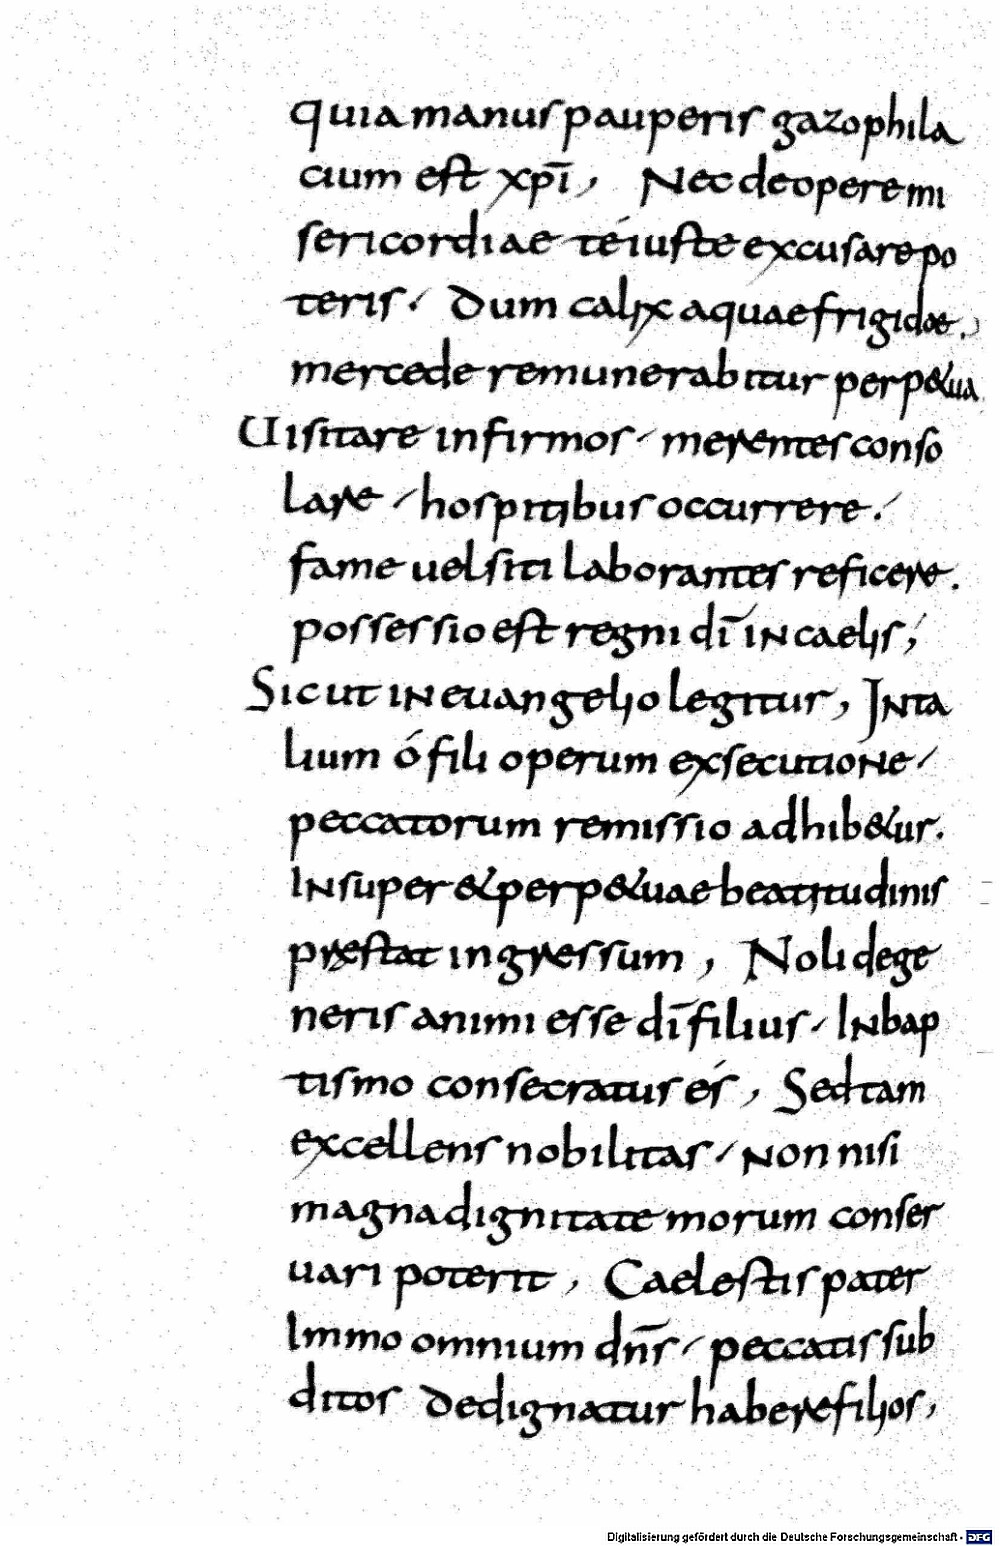 quia manus pauperis gazophila
cium est xp̄i, Nec de opere mi
sericordiae té iuste excusare po
teris. Dum calix aquae frigidae.
mercede remunerabitur perp&ua
Uisitare infirmos / merentes conso
lare / hospitibus occurrere.
fame uel siti laborantes reficere.
possessio est regni dī in caelis,
Sicut in euangelio legitur, In ta
lium ó fili operum exsecutione /
peccatorum remissio adhib&ur.
Insuper & perp&uae beatitudinis
pręstat ingressum, Noli dege
neris animi esse dī filius / In bap
tismo consecratus és, Sed tam
excellens nobilitas / non nisi
magna dignitate morum conser
uari poterit, Caelestis pater
Immo omnium dn̄s / peccatis sub
ditos dedignatur habere filios,
Digitalisierung gefördert durch die Deutsche Forschungsgemeinschaft - DFG